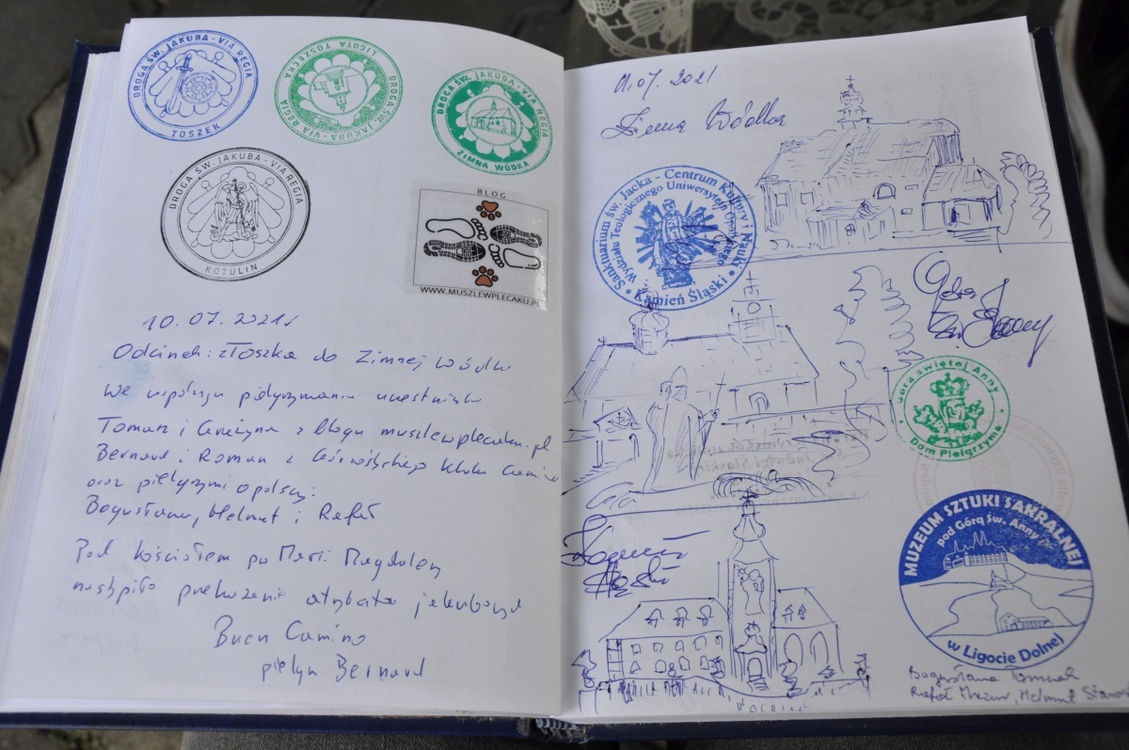 DROGA ŚW. JAKUBA - VIA REGIA
TOSZEK
DROGA ŚW. JAKUBA - VIA REGIA
LIGOTA TOSZECKA
DROGA ŚW. JAKUBA - VIA REGIA
ZIMNA WÓDKA
DROGA ŚW. JAKUBA - VIA REGIA
KOTULIN
BLOG
WWW.MUSZLEWPLECAKU.PL
10.07.2021r
Odcinek: z Toszka do Zimnej Wódki
We wspólnym pielgrzymowaniu uczestniczyli
Tomasz i Grażyna z blogu muszlewplecaku.pl
Bernard i Roman z Klubu Camino
oraz pielgrzymi opolscy:
Bogusława, Helmut i Rafał
Pod kościołem pw Marii Magdaleny
nastąpiło przekazanie atrybutów
Buen Camino
Bernard
11.07.2021
Zimna Wódka
Sanktuarium św. Jacka - Centrum Kultury i Nauki
Wydziału Teologicznego Uniwersytetu Opolskiego
Kamień Śląski
Góra Świętej Anny
Dom Pielgrzyma
MUZEUM SZTUKI SAKRALNEJ
pod Górą Św. Anny
w Ligocie Dolnej
Bogusława Tomczak
Rafał Mazur, Helmut